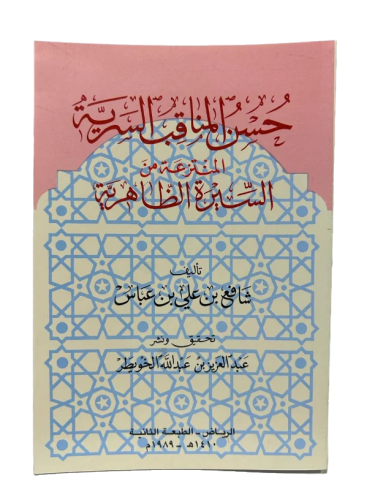 حُسنُ المناقب السرية
المنتزعة من
السيرة الظاهرية
تأليف
شافع بن علي بن عباس
تحقيق ونشر
عبد العزيز بن عبدالله الخويطر
الرياض - الطبعة الثانية
١٤١٠هـ - ١٩٨٩م